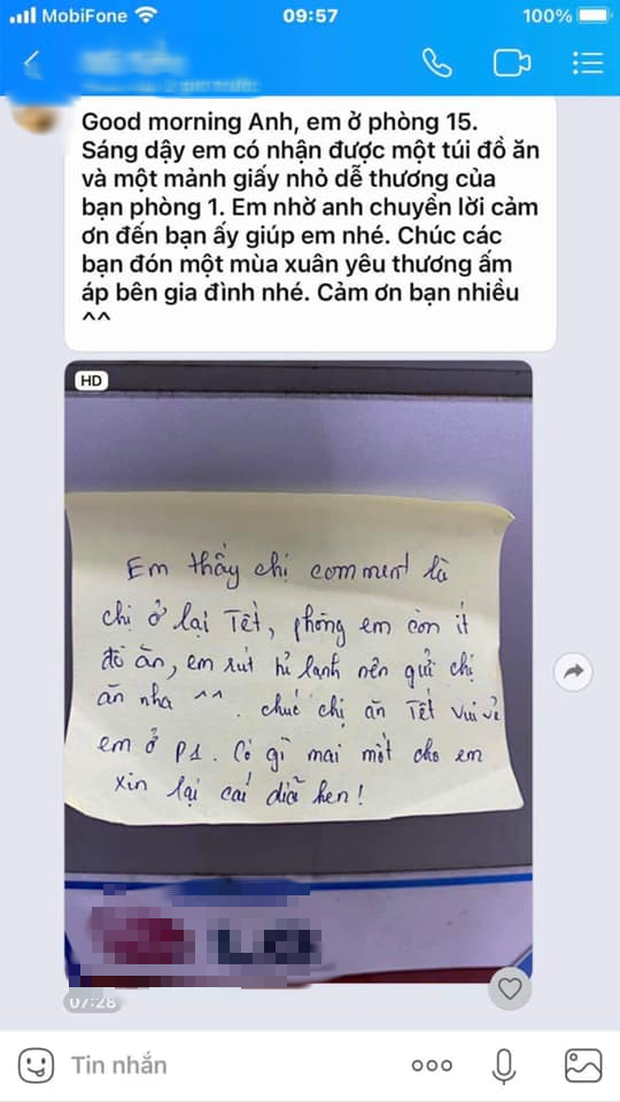 MobiFone
09:57
100%
Good morning Anh, em ở phòng 15.
Sáng dậy em có nhận được một túi đồ ăn
và một mảnh giấy nhỏ dễ thương của
bạn phòng 1. Em nhờ anh chuyển lời cảm
ơn đến bạn ấy giúp em nhé. Chúc các
bạn đón một mùa xuân yêu thương ấm
áp bên gia đình nhé. Cảm ơn bạn nhiều
^^
HD
Em thấy chị comment là
chị ở lại Tết, phòng em còn ít
đồ ăn, em rút tủ lạnh nên gửi chị
ăn nha ^^. chúc chị ăn Tết vui vẻ
em ở P1. Có gì mai mốt cho em
xin lại cái dĩa hen!
07:28
Tin nhắn